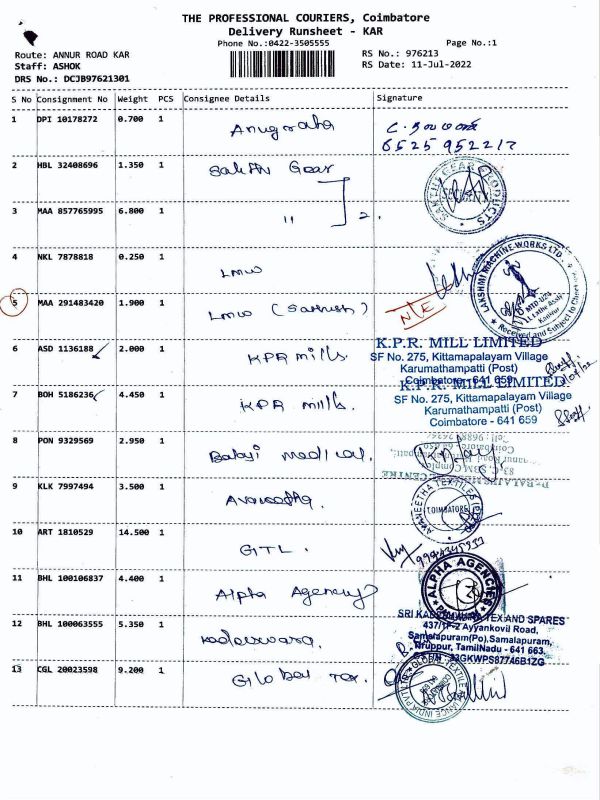 THE PROFESSIONAL COURIERS, Coimbatore
Delivery Runsheet - KAR
Phone No.:0422-3505555
Page No.:1
Route: ANNUR ROAD KAR
RS No.: 976213
Staff: ASHOK
RS Date: 11-Jul-2022
DRS No.: DCJB97621301
S No Consignment No Weight PCS Consignee Details Signature
1 DPI 10178272 0.700 1 Anugraha
2 HBL 32408696 1.350 1 Gear
SANTHI GEAR PRODUCTS
3 MAA 857765995 6.800 1 " 2.
4 NKL 7878818 0.250 1 LMW
LAKSHMI MACHINE WORKS LTD.
5 MAA 291483420 1.900 1 LMW (Sathish) N/E
MTD-UZ4
Received and Subject to Check
6 ASD 1136188 2.000 1 KPR mills.
K.P.R. MILL LIMITED
SF No. 275, Kittamapalayam Village
Karumathampatti (Post)
Coimbatore - 641 659
7 BOH 5186236 4.450 1 KPR mills.
K.P.R. MILL LIMITED
SF No. 275, Kittamapalayam Village
Karumathampatti (Post)
Coimbatore - 641 659
8 PON 9329569 2.950 1 Balaji medical.
9 KLK 7997494 3.500 1
AVANEETHA TEXTILES (P) LTD
COIMBATORE
10 ART 1810529 14.500 1 GTL.
11 BHL 100106837 4.400 1 Alpha Agency
ALPHA AGENCIES
12 BHL 100063555 5.350 1
SRI KADESWARA TEX AND SPARES
437/1F-2 Ayyankovil Road,
Samalapuram(Po),Samalapuram,
Tiruppur, TamilNadu - 641 663.
13 CGL 20023598 9.200 1 Global Tex.